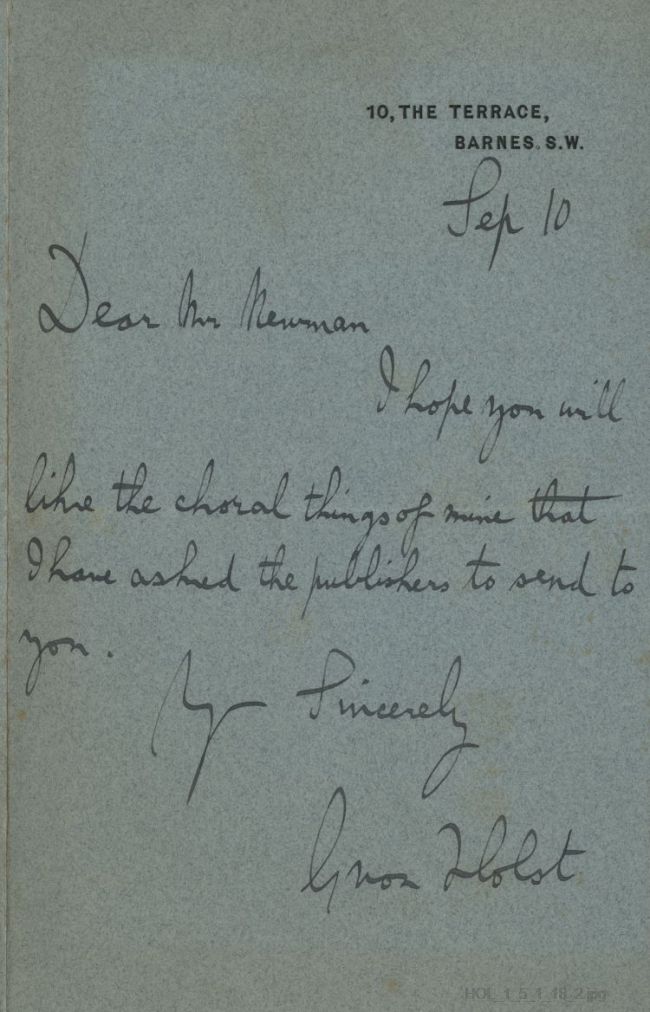 10, THE TERRACE,
BARNES. S.W.
Sep 10
Dear Mr Newman
I hope you will
like the choral things of mine that
I have asked the publishers to send to
you.
Sincerely
Holst
HOL_1_5_1_18_2.jpg